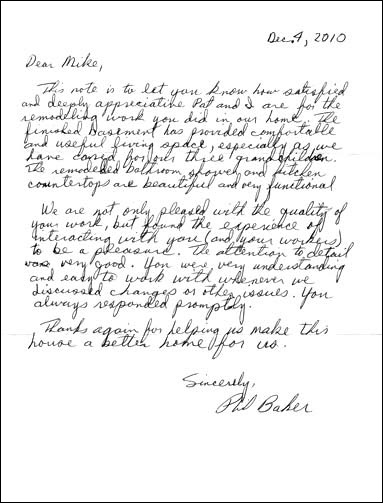 Dec. 4, 2010
Dear Mike,
This note is to let you know how satisfied
and deeply appreciative Pat and I are for the
remodeling work you did in our home. The
finished basement has provided comfortable
and useful living space, especially as we
have cared for our three grandchildren.
The remodeled bathroom, shower, and kitchen
countertops are beautiful and very functional
We are not only pleased with the quality of
your work, but found the experience of
interacting with you (and your workers)
to be a pleasure. The attention to detail
was very good. You were very understanding
and easy to work with whenever we
discussed changes or other issues. You
always responded promptly.
Thanks again for helping us make this
house a better home for us.
Sincerely,
Phil Baker